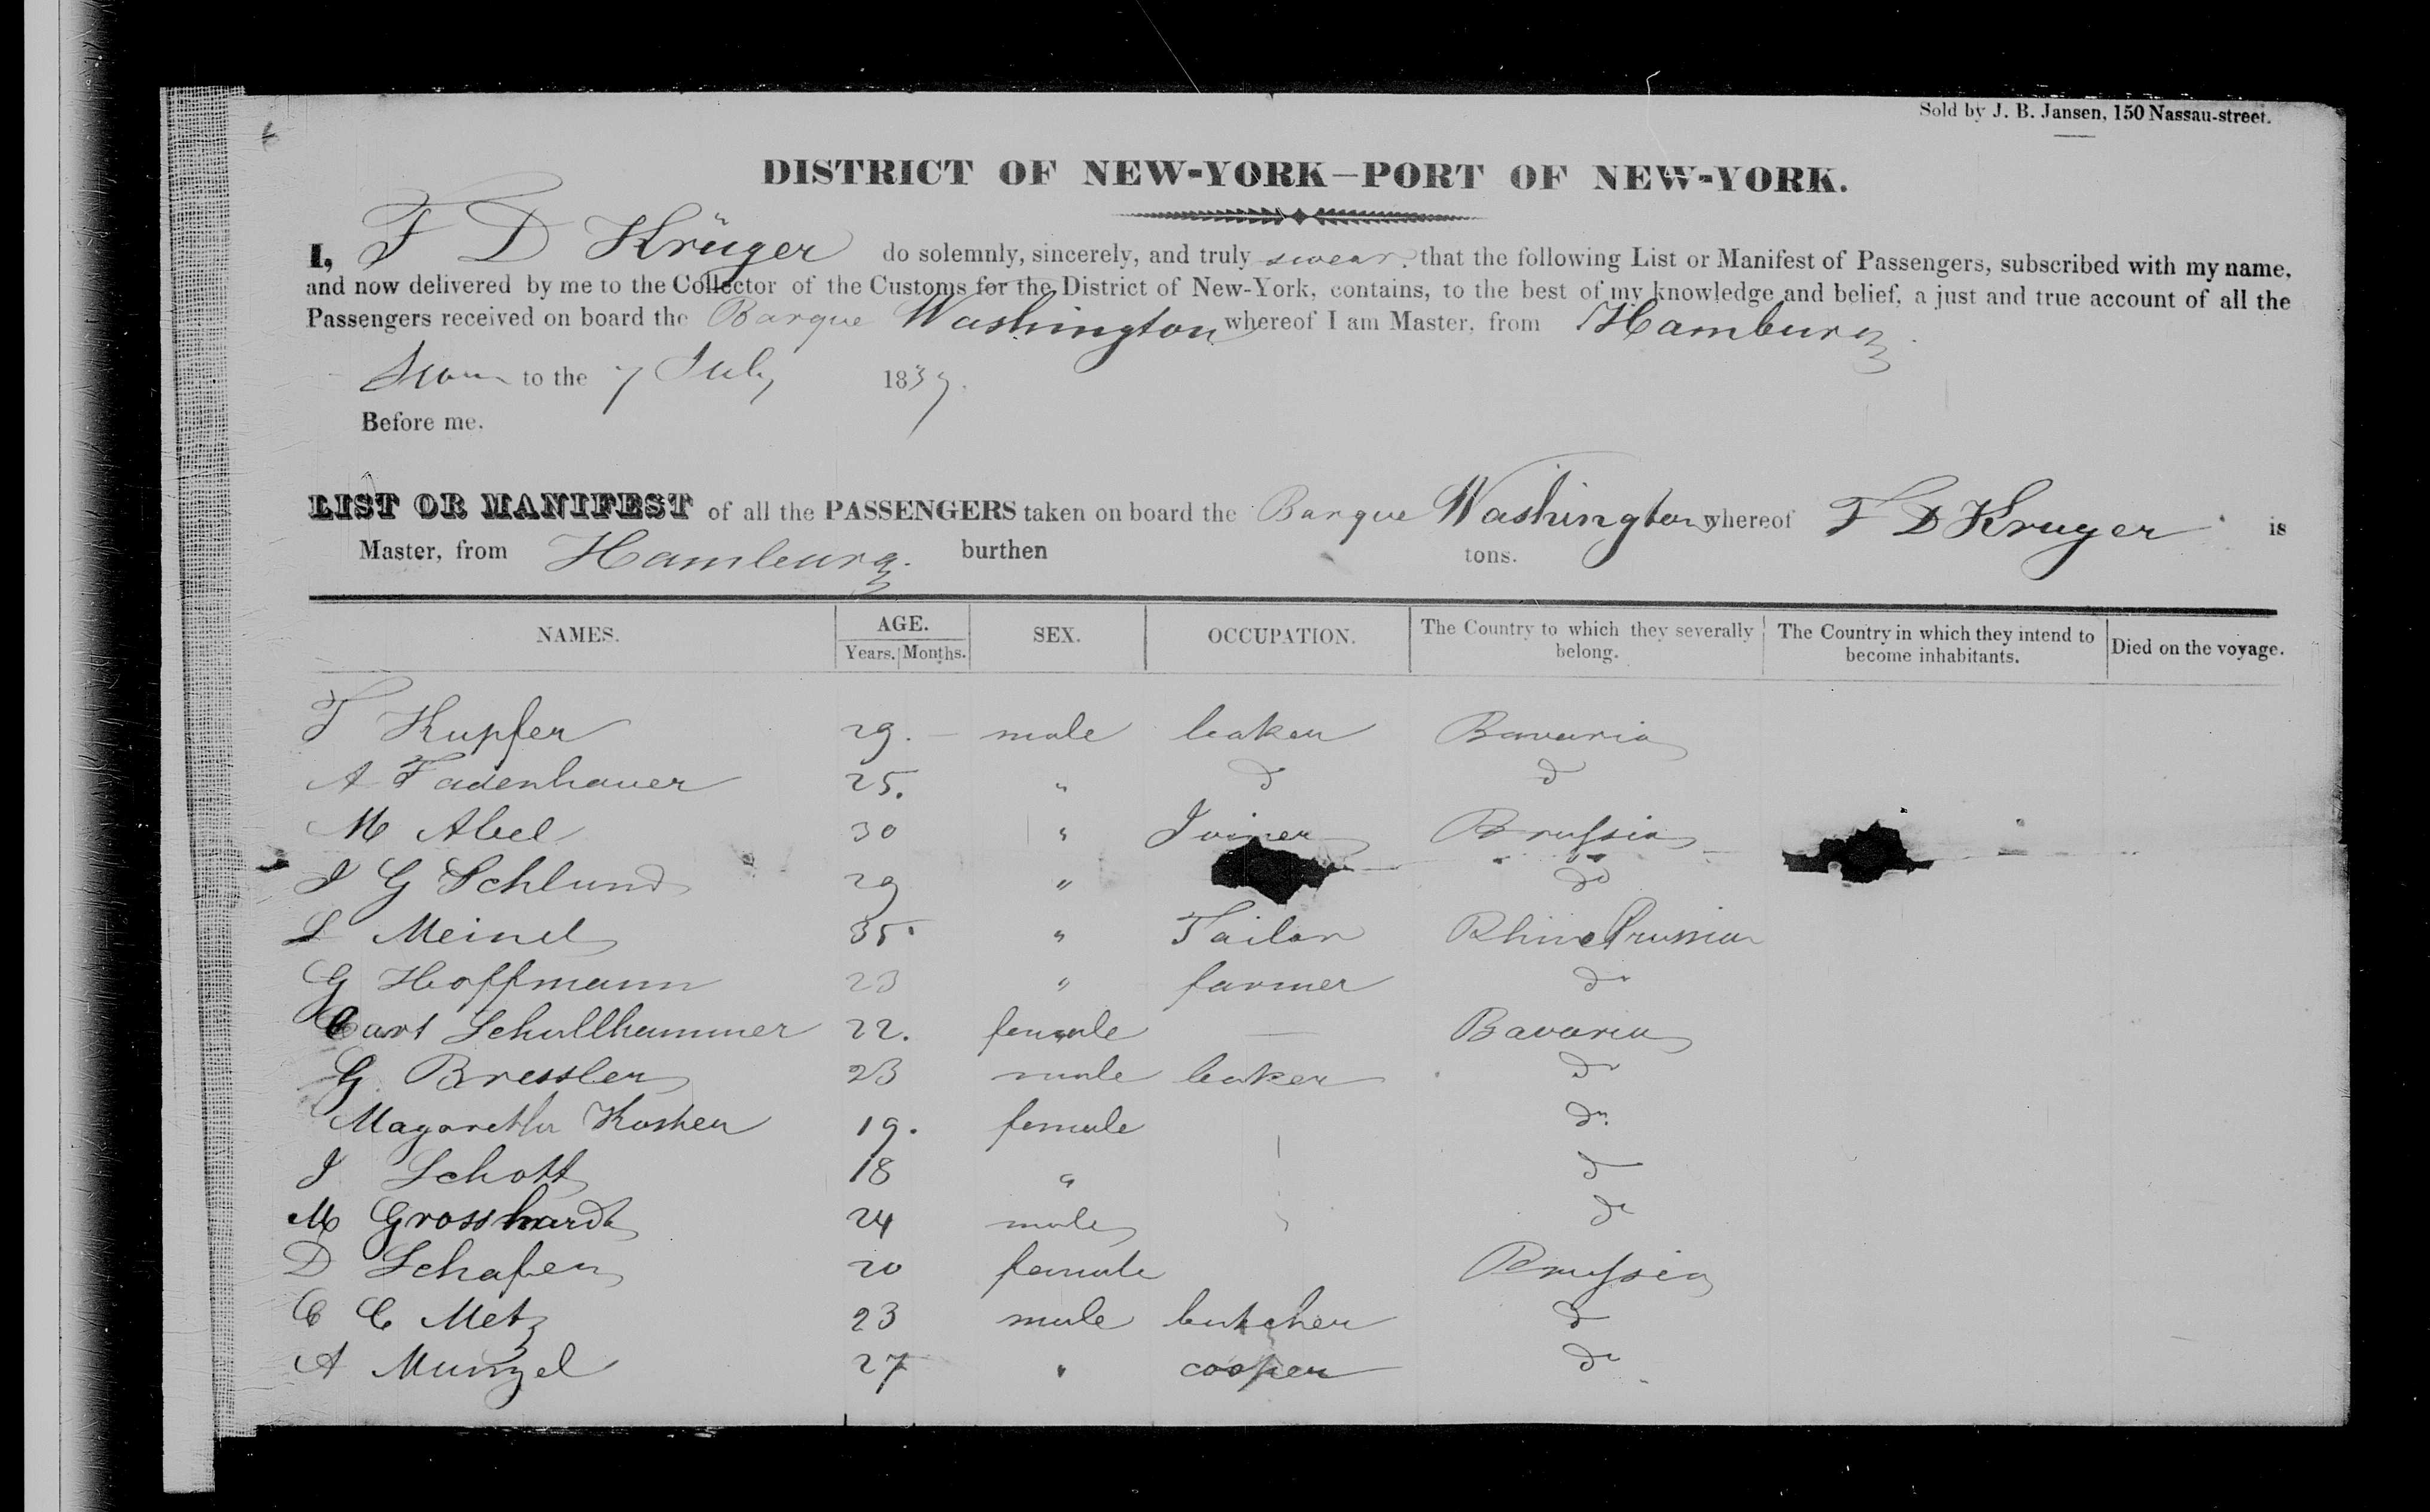 Sold by J. B. Jansen, 150 Nassau-street.
DISTRICT OF NEW-YORK—PORT OF NEW-YORK.
I, F D Krüger do solemnly, sincerely, and truly swear that the following List or Manifest of Passengers, subscribed with my name,
and now delivered by me to the Collector of the Customs for the District of New-York, contains, to the best of my knowledge and belief, a just and true account of all the
Passengers received on board the Barque Washington whereof I am Master, from Hamburg
Sworn to the 7 July 1839.
Before me.
LIST OR MANIFEST of all the PASSENGERS taken on board the Barque Washington whereof F D Kruger is
Master, from Hamburg. burthen tons.
NAMES. AGE. SEX. OCCUPATION. The Country to which they severally belong. The Country in which they intend to become inhabitants. Died on the voyage.
Years. Months.
F Kupfer 29. male baker Bavaria
A Fadenhauer 25. " do do
M Abel 30 " Joiner Prussia
J G Schlund 29 " do
L Meinel 35. " Tailor Rhine Prussia
G Hoffmann 23 " farmer do
Schullhammer 22. female — Bavaria
G. Bressler 23 male baker do
Magaretha 19. female do
J Schott 18 " do
M Grosshardt 24 male do
D Schafer 20 female Prussia
C C Metz 23 male butcher do
A Munzel 27 " cooper do